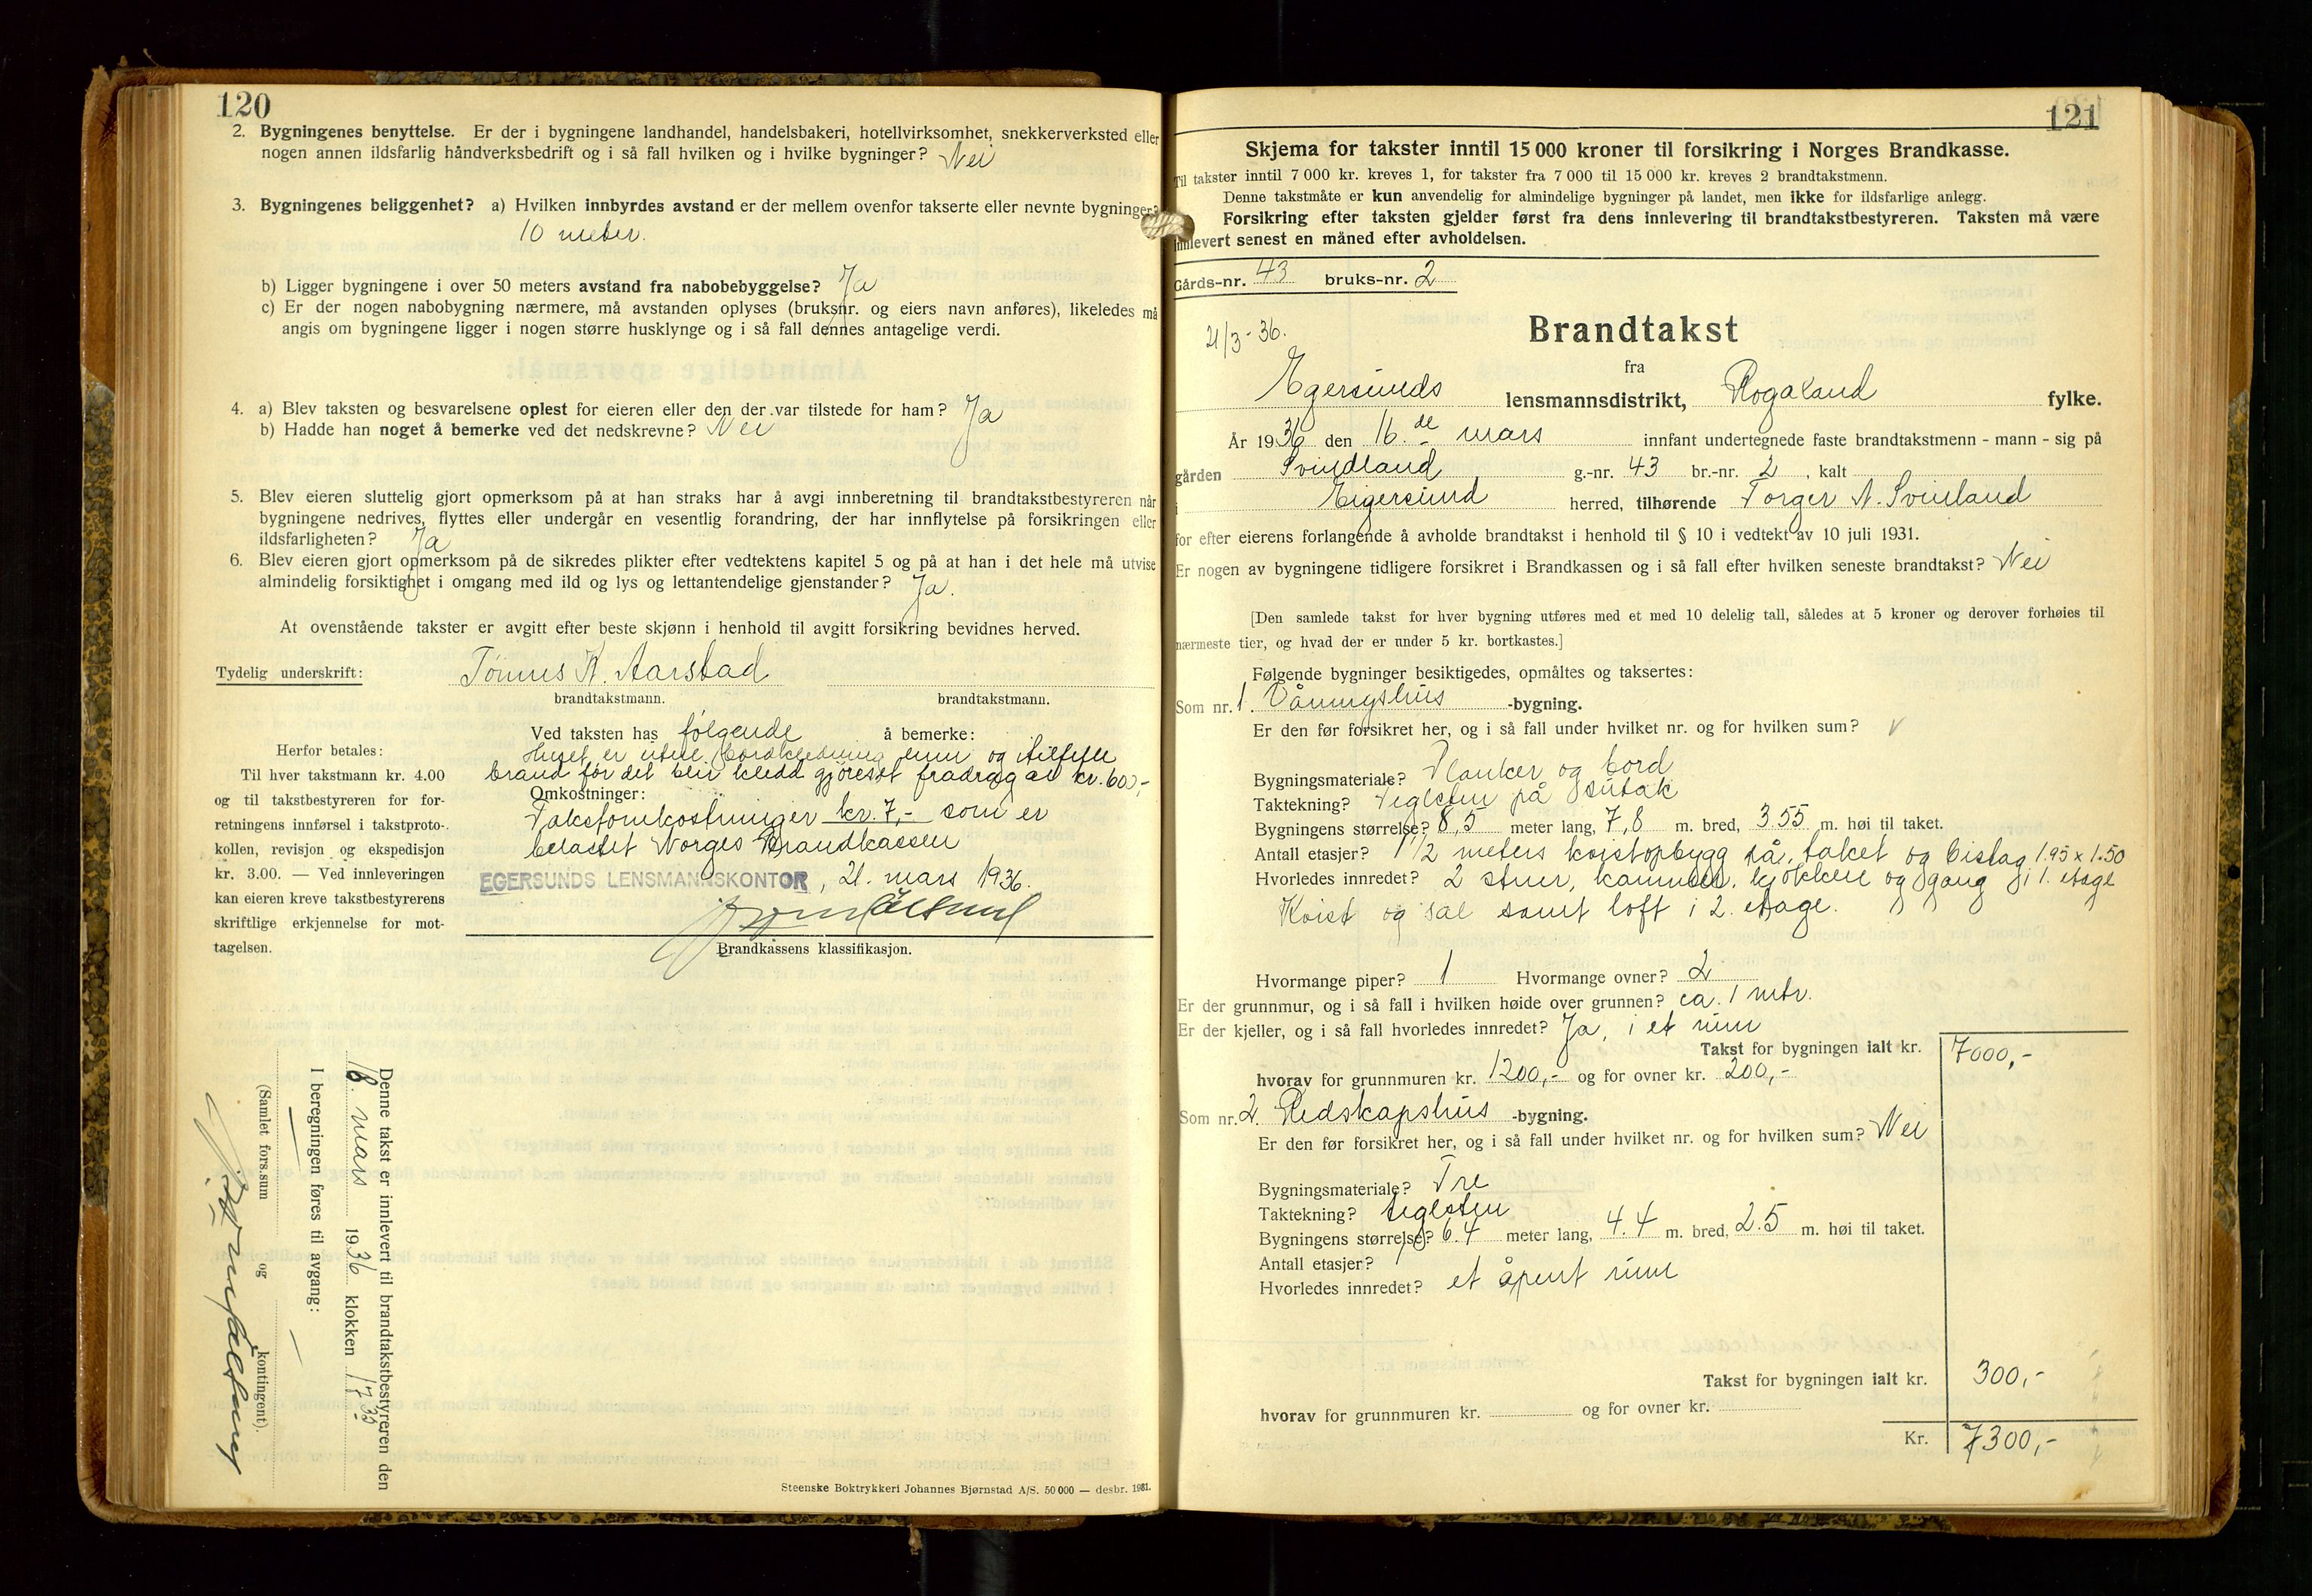 120
2. Bygningenes benyttelse. Er der i bygningene landhandel, handelsbakeri, hotellvirksomhet, snekkerverksted eller
nogen annen ildsfarlig håndverksbedrift og i så fall hvilken og i hvilke bygninger? Nei
3. Bygningenes beliggenhet? a) Hvilken innbyrdes avstand er der mellem ovenfor takserte eller nevnte bygninger?
10 meter.
b) Ligger bygningene i over 50 meters avstand fra nabobebyggelse? Ja
c) Er der nogen nabobygning nærmere, må avstanden oplyses (bruksnr. og eiers navn anføres), likeledes må
angis om bygningene ligger i nogen større husklynge og i så fall dennes antagelige verdi.
4. a) Blev taksten og besvarelsene oplest for eieren eller den der var tilstede for ham? Ja
b) Hadde han noget å bemerke ved det nedskrevne? Nei
5. Blev eieren sluttelig gjort opmerksom på at han straks har å avgi innberetning til brandtakstbestyreren når
bygningene nedrives, flyttes eller undergår en vesentlig forandring, der har innflytelse på forsikringen eller
ildsfarligheten? Ja
6. Blev eieren gjort opmerksom på de sikredes plikter efter vedtektens kapitel 5 og på at han i det hele må utvise
almindelig forsiktighet i omgang med ild og lys og lettantendelige gjenstander? Ja.
At ovenstående takster er avgitt efter beste skjønn i henhold til avgitt forsikring bevidnes herved.
Tydelig underskrift: Tønnes K. Aarstad
brandtakstmann. brandtakstmann.
Ved taksten has følgende å bemerke:
Huset er uten bordkledning ennu og tilfelle
brand før det blir kledd gjøreset fradrag av kr. 600,-
Omkostninger:
Takstomkostninger kr. 7,- som er
belastet Norges Brandkassen
EGERSUNDS LENSMANNSKONTOR, 21. mars 1936.
Brandkassens klassifikasjon.
Herfor betales:
Til hver takstmann kr. 4.00
og til takstbestyreren for for-
retningens innførsel i takstproto-
kollen, revisjon og ekspedisjon
kr. 3.00. — Ved innleveringen
kan eieren kreve takstbestyrerens
skriftlige erkjennelse for mot-
tagelsen.
Denne takst er innlevert til brandtakstbestyreren den
18. mars 1936 klokken 17 35
I beregningen føres til avgang:
(Samlet fors.sum og kontingent).
Steenske Boktrykkeri Johannes Bjørnstad A/S. 50 000 — desbr. 1931.
121
Skjema for takster inntil 15 000 kroner til forsikring i Norges Brandkasse.
Til takster inntil 7 000 kr. kreves 1, for takster fra 7 000 til 15 000 kr. kreves 2 brandtakstmenn.
Denne takstmåte er kun anvendelig for almindelige bygninger på landet, men ikke for ildsfarlige anlegg.
Forsikring efter taksten gjelder først fra dens innlevering til brandtakstbestyreren. Taksten må være
innlevert senest en måned efter avholdelsen.
Gårds-nr. 43 bruks-nr. 2
21/3-36.
Brandtakst
fra
Egersunds lensmannsdistrikt, Rogaland fylke.
År 1936 den 16.de mars innfant undertegnede faste brandtakstmenn - mann - sig på
gården Svindland g.-nr. 43 br.-nr. 2, kalt
i Eigersund herred, tilhørende Torger N. Svinland
for efter eierens forlangende å avholde brandtakst i henhold til § 10 i vedtekt av 10 juli 1931.
Er nogen av bygningene tidligere forsikret i Brandkassen og i så fall efter hvilken seneste brandtakst? Nei
[Den samlede takst for hver bygning utføres med et med 10 delelig tall, således at 5 kroner og derover forhøies til
nærmeste tier, og hvad der er under 5 kr. bortkastes.]
Følgende bygninger besiktigedes, opmåltes og taksertes:
Som nr. 1. Våningshus -bygning.
Er den før forsikret her, og i så fall under hvilket nr. og for hvilken sum?
Bygningsmateriale? Planker og bord
Taktekning? Teglsten på sutak
Bygningens størrelse? 8,5 meter lang, 7,8 m. bred, 3.55 m. høi til taket.
Antall etasjer? 1 1/2 meters kvistopbygg på taket og bislag 1.95 x 1.50
Hvorledes innredet? 2 stuer, kammer, kjøkken og gang i 1. etage
Kvist og sal samt loft i 2. etage.
Hvormange piper? 1 Hvormange ovner? 2
Er der grunnmur, og i så fall i hvilken høide over grunnen? ca. 1 mtr.
Er der kjeller, og i så fall hvorledes innredet? Ja, i et rum
Takst for bygningen ialt kr. 7000,-
hvorav for grunnmuren kr. 1200,- og for ovner kr. 200,-
Som nr. 2. Redskapshus -bygning.
Er den før forsikret her, og i så fall under hvilket nr. og for hvilken sum? Nei
Bygningsmateriale? Tre
Taktekning? teglsten
Bygningens størrelse? 6.4 meter lang, 4.4 m. bred, 2.5 m. høi til taket.
Antall etasjer? 1
Hvorledes innredet? et åpent rum
Takst for bygningen ialt kr. 300,-
hvorav for grunnmuren kr. og for ovner kr.
Kr. 7300,-